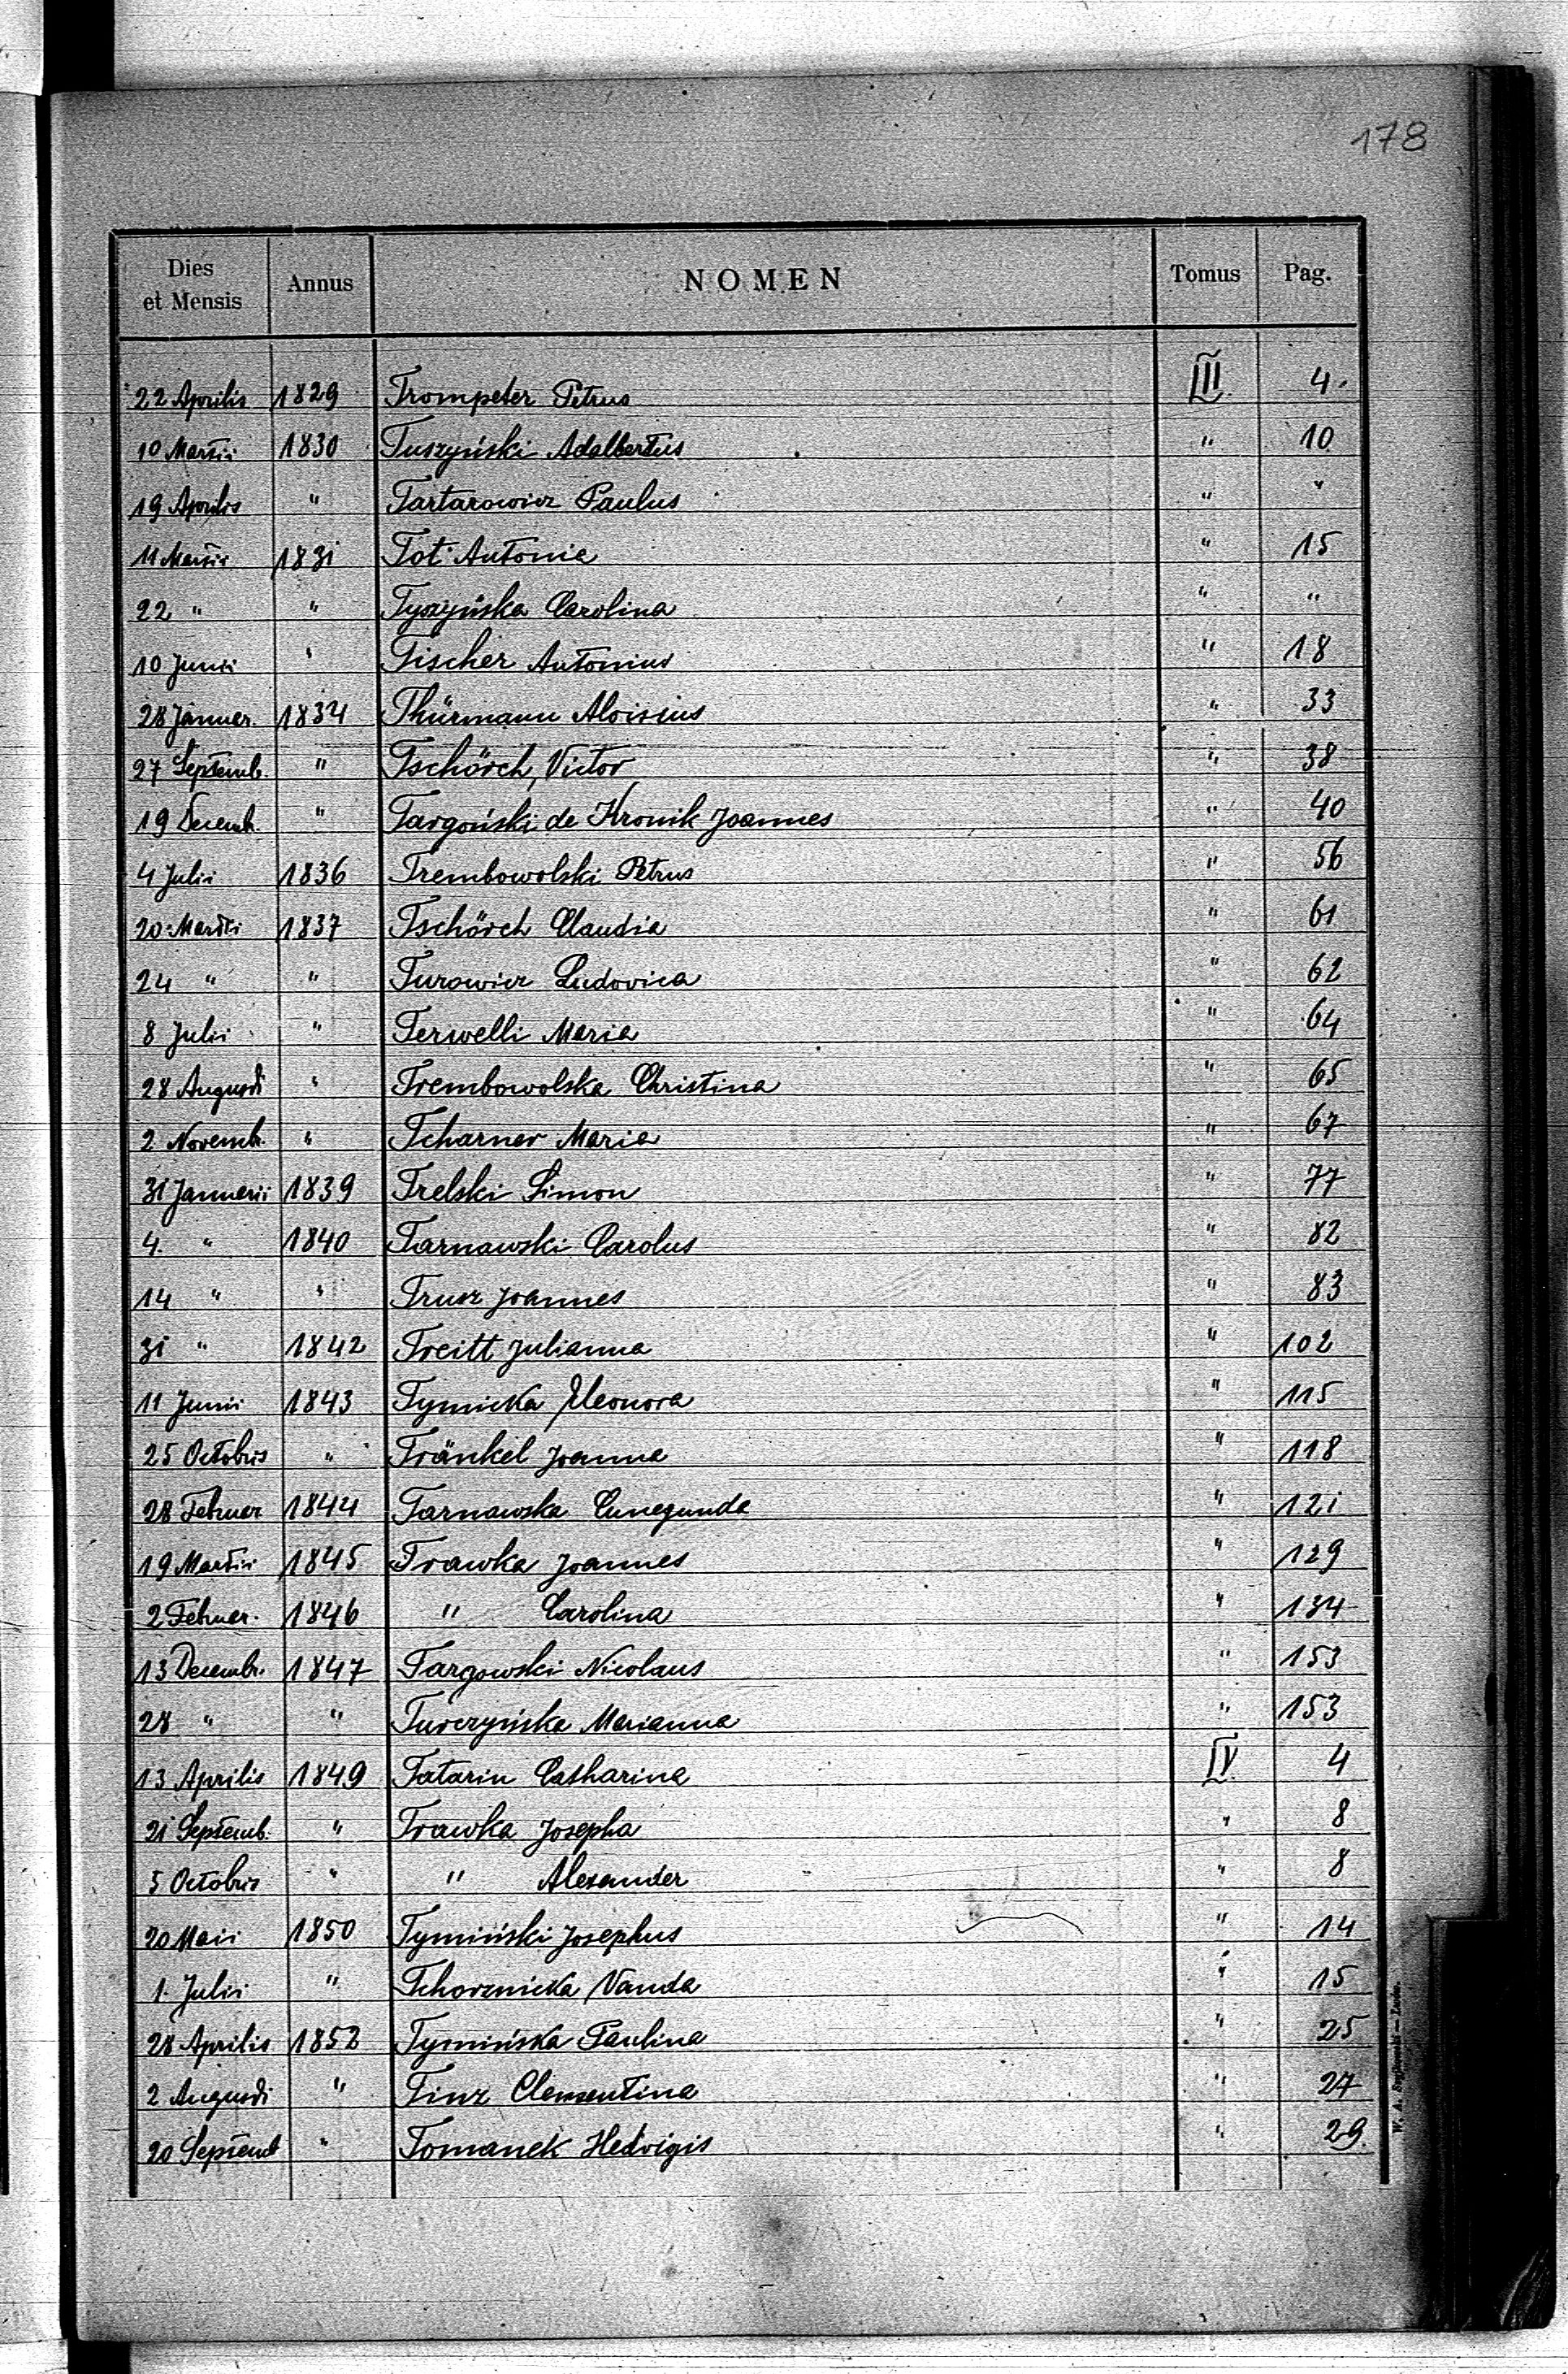 178
Dies et Mensis Annus NOMEN Tomus Pag.
22 Aprilis 1829 Trompeter Petrus III. 4.
10 Martii 1830 Tuszyński Adalbertus " 10
19 Aprilis " Tartarowicz Paulus " "
11 Martii 1831 Tot Antonia " 15
22 " " Tyszyńska Carolina " "
10 Junii " Tischer Antonius " 18
28 Januer. 1834 Thürmann Aloisius " 33
27 Septemb. " Tschörch, Victor " 38
19 Decemb. " Targoński de Kronik Joannes " 40
4 Julii 1836 Trembowolski Petrus " 56
20 Martii 1837 Tschörch Claudia " 61
24 " " Turowicz Ludovica " 62
8 Julii " Terwelli Maria " 64
28 Augusti " Trembowolska Christina " 65
2 Novemb. " Tcharner Maria " 67
31 Januarii 1839 Trelski Simon " 77
4. " 1840 Tarnawski Carolus " 82
14 " " Trusz Joannes " 83
31 " 1842 Treitt Julianna " 102
11 Junii 1843 Tymicka Eleonora " 115
25 Octobris " Tränkel Joanna " 118
28 Februar 1844 Tarnawska Cunegunda " 121
19 Martii 1845 Trawka Joannes " 129
2 Februar. 1846 " Carolina " 134
13 Decembr. 1847 Targowski Nicolaus " 153
28 " " Turczyńska Marianna " 153
13 Aprilis 1849 Tatarin Catharina IV. 4
21 Septemb. " Trawka Josepha " 8
5 Octobris " " Alexander " 8
20 Maii 1850 Tymiński Josephus " 14
1. Julii " Tchorznicka Vanda " 15
28 Aprilis 1852 Tymińska Paulina " 25
2 Augusti " Tinz Clementina " 27
20 Septemb " Tomanek Hedvigis " 29.